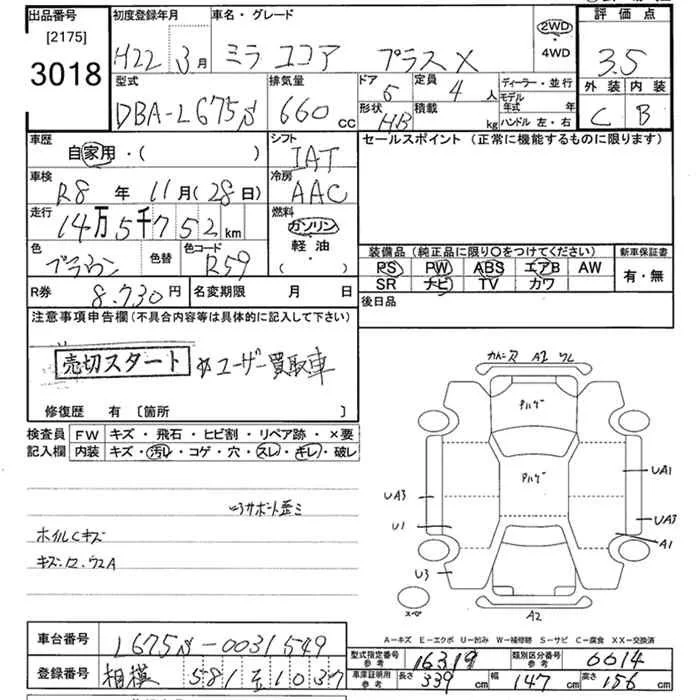 出品番号
[2175]
3018
初度登録年月
H22年3月
車名・グレード
ミラ ココア プラスX
2WD
4WD
評価点
3.5
外装 内装
C B
型式
DBA-L675S
排気量
660cc
ドア
5
形状
HB
定員
4人
積載
kg
ディーラー・並行
モデル年式 年
ハンドル 左・右
車歴
自家用・( )
シフト
IAT
セールスポイント (正常に機能するものに限ります)
車検
R8年11月(28日)
冷房
AAC
走行
14万5千752km
燃料
ガソリン
軽油
( ・ )
色
ブラウン
色替
色コード
R59
装備品 (純正品に限り〇をつけてください)
PS PW ABS エアB AW
SR ナビ TV カワ
新車保証書
有・無
R券 8,730円
名変期限 月 日
後日品
注意事項申告欄 (不具合内容等は具体的に記入して下さい)
売切スタート ☆ユーザー買取車
修復歴 有 〔箇所 〕
検査員記入欄
FW キズ・飛石・ヒビ割・リペア跡・×要
内装 キズ・汚レ・コゲ・穴・スレ・キレ・破レ
ホイルCキズ
A2
UA1
UA3
UA3
U1
A1
U3
スペ
A2
A-キズ E-エクボ U-凹み W-補修跡 S-サビ C-腐食 XX-交換済
車台番号 L675S-0031549
登録番号 相模 581 1037
型式指定番号 参考 16319
類別区分番号 参考 0014
車庫証明用 参考
長さ 339cm 幅 147cm 高さ 156cm